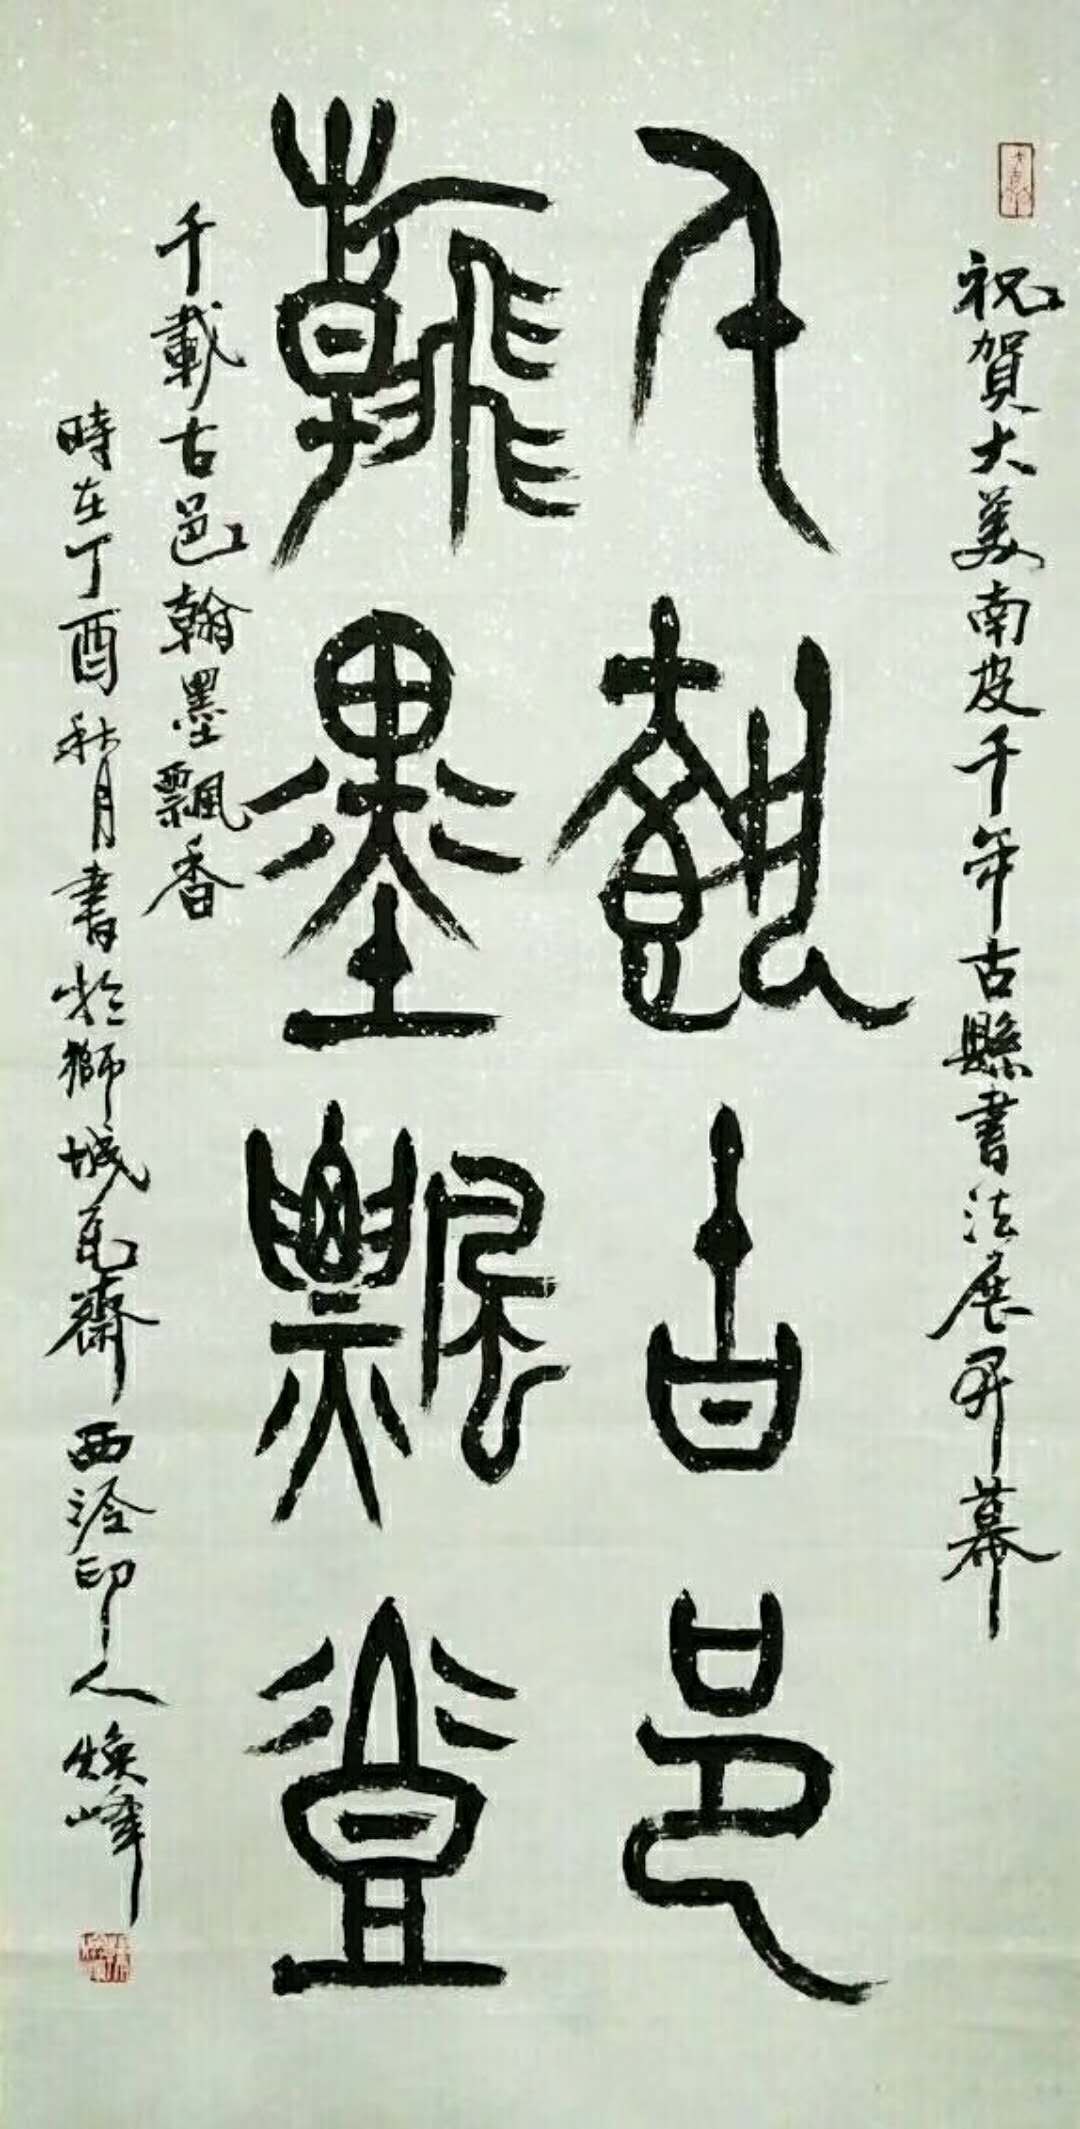 祝賀大美南皮千年古縣書法展開幕
千載古邑
翰墨飄香
千載古邑翰墨飄香
時在丁酉秋月書於獅城瓦齋西泠印人煥峰